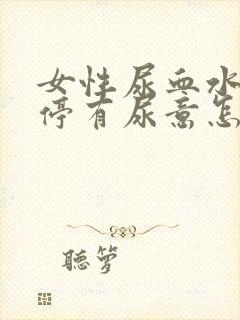 女性尿血水
停有尿意怎
聽箩